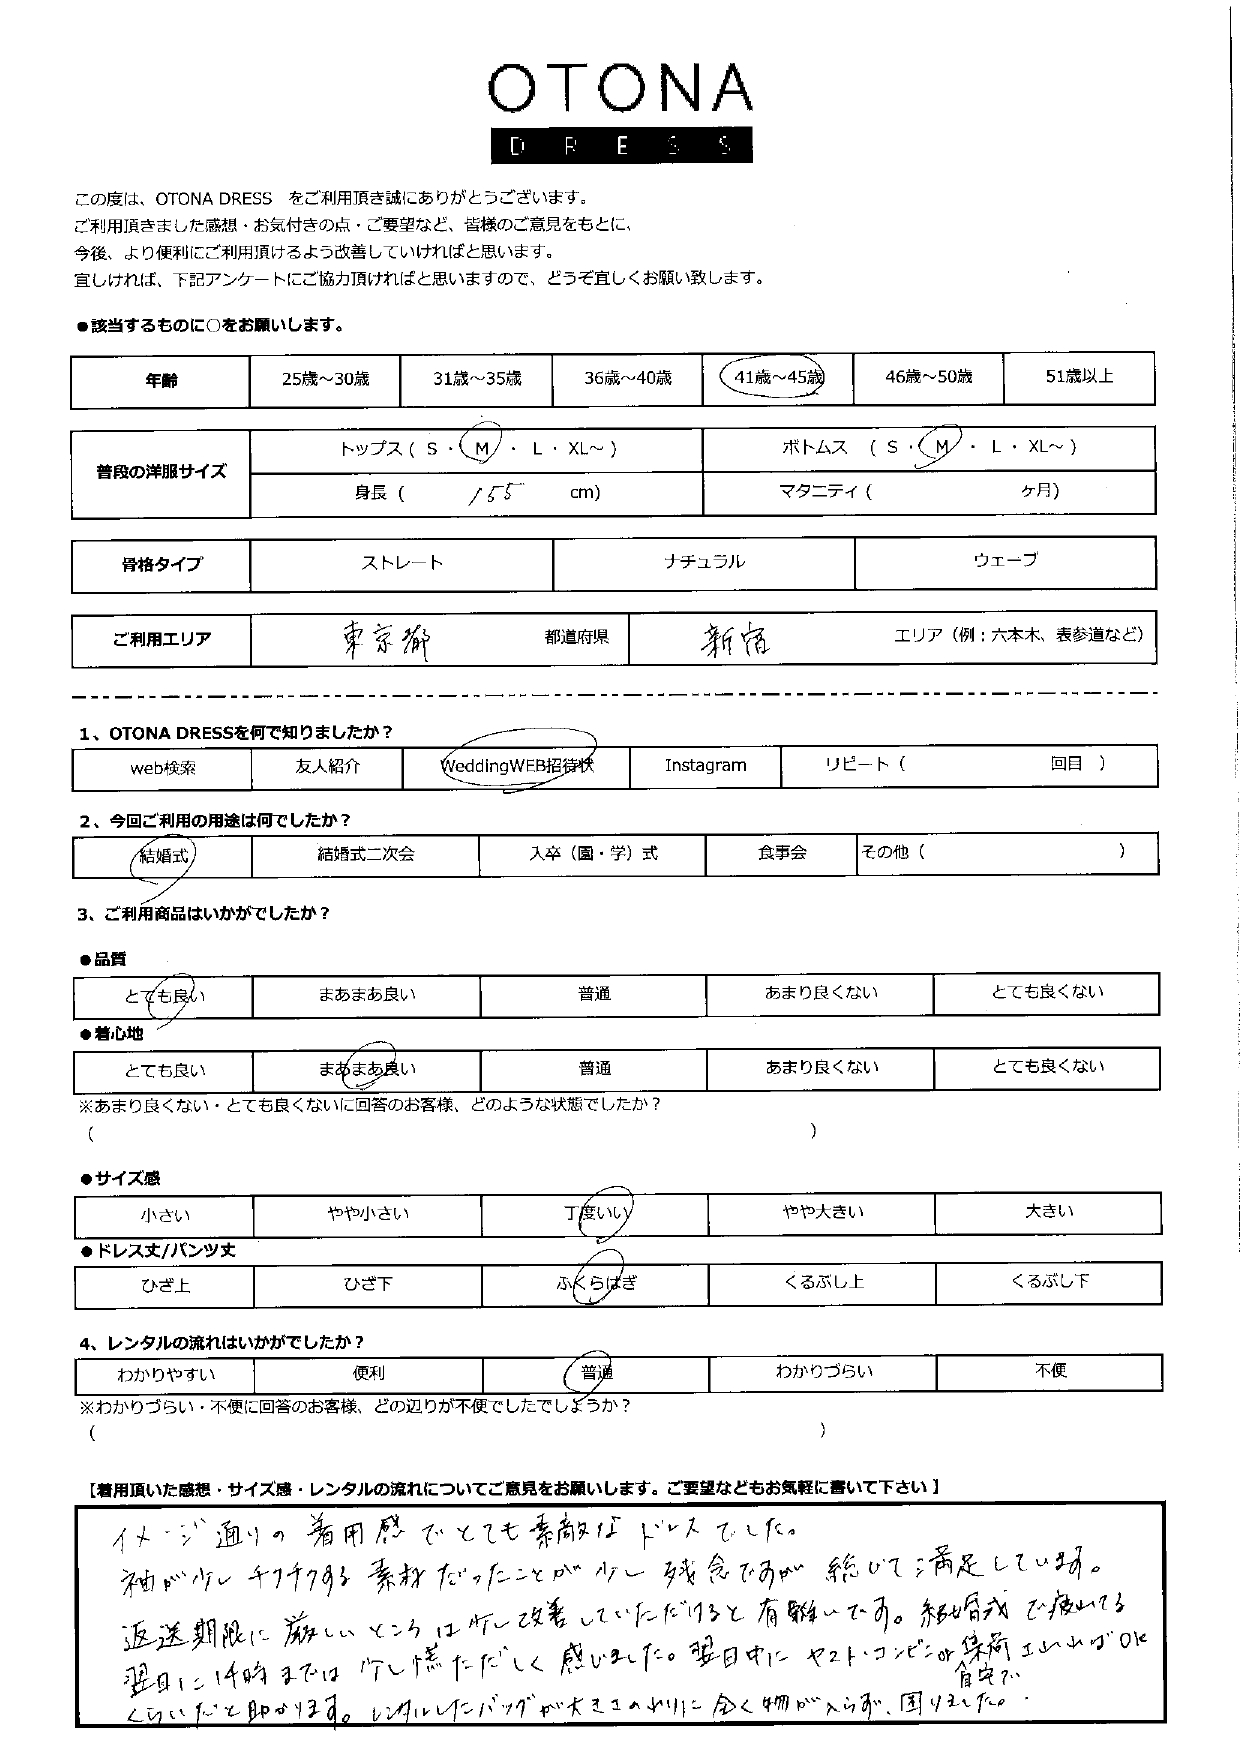 OTONA
DRESS
この度は、OTONA DRESS をご利用頂き誠にありがとうございます。
ご利用頂きました感想・お気付きの点・ご要望など、皆様のご意見をもとに、
今後、より便利にご利用頂けるよう改善していければと思います。
宜しければ、下記アンケートにご協力頂ければと思いますので、どうぞ宜しくお願い致します。
●該当するものに○をお願いします。
年齢 25歳～30歳 31歳～35歳 36歳～40歳 41歳～45歳 46歳～50歳 51歳以上
普段の洋服サイズ トップス ( S ・ M ・ L ・ XL～ ) ボトムス ( S ・ M ・ L ・ XL～ )
身長 ( 155 cm) マタニティ ( ケ月)
骨格タイプ ストレート ナチュラル ウェーブ
ご利用エリア 東京都 都道府県 新宿 エリア（例：六本木、表参道など）
1、OTONA DRESSを何で知りましたか？
web検索 友人紹介 WeddingWEB招待状 Instagram リピート（ 回目 ）
2、今回ご利用の用途は何でしたか？
結婚式 結婚式二次会 入卒（園・学）式 食事会 その他（ ）
3、ご利用商品はいかがでしたか？
●品質
とても良い まあまあ良い 普通 あまり良くない とても良くない
●着心地
とても良い まあまあ良い 普通 あまり良くない とても良くない
※あまり良くない・とても良くないに回答のお客様、どのような状態でしたか？
( )
●サイズ感
小さい やや小さい 丁度いい やや大きい 大きい
●ドレス丈/パンツ丈
ひざ上 ひざ下 ふくらはぎ くるぶし上 くるぶし下
4、レンタルの流れはいかがでしたか？
わかりやすい 便利 普通 わかりづらい 不便
※わかりづらい・不便に回答のお客様、どの辺りが不便でしたでしようか？
( )
【着用頂いた感想・サイズ感・レンタルの流れについてご意見をお願いします。ご要望などもお気軽に書いて下さい】
イメージ通りの着用感でとても素敵なドレスでした。
袖が少しチクチクする素材だったことが少し残念ですが総じて満足しています。
返送期限に厳しいところは少し改善していただけると有難いです。結婚式で疲れてる
翌日に14時までは少し慌ただしく感じました。翌日中にヤマト・コンビニor集荷エレればOK
自宅で
くらいだと助かります。レンタルしたバッグが大きさのわりに全く物が入らず、困りました。